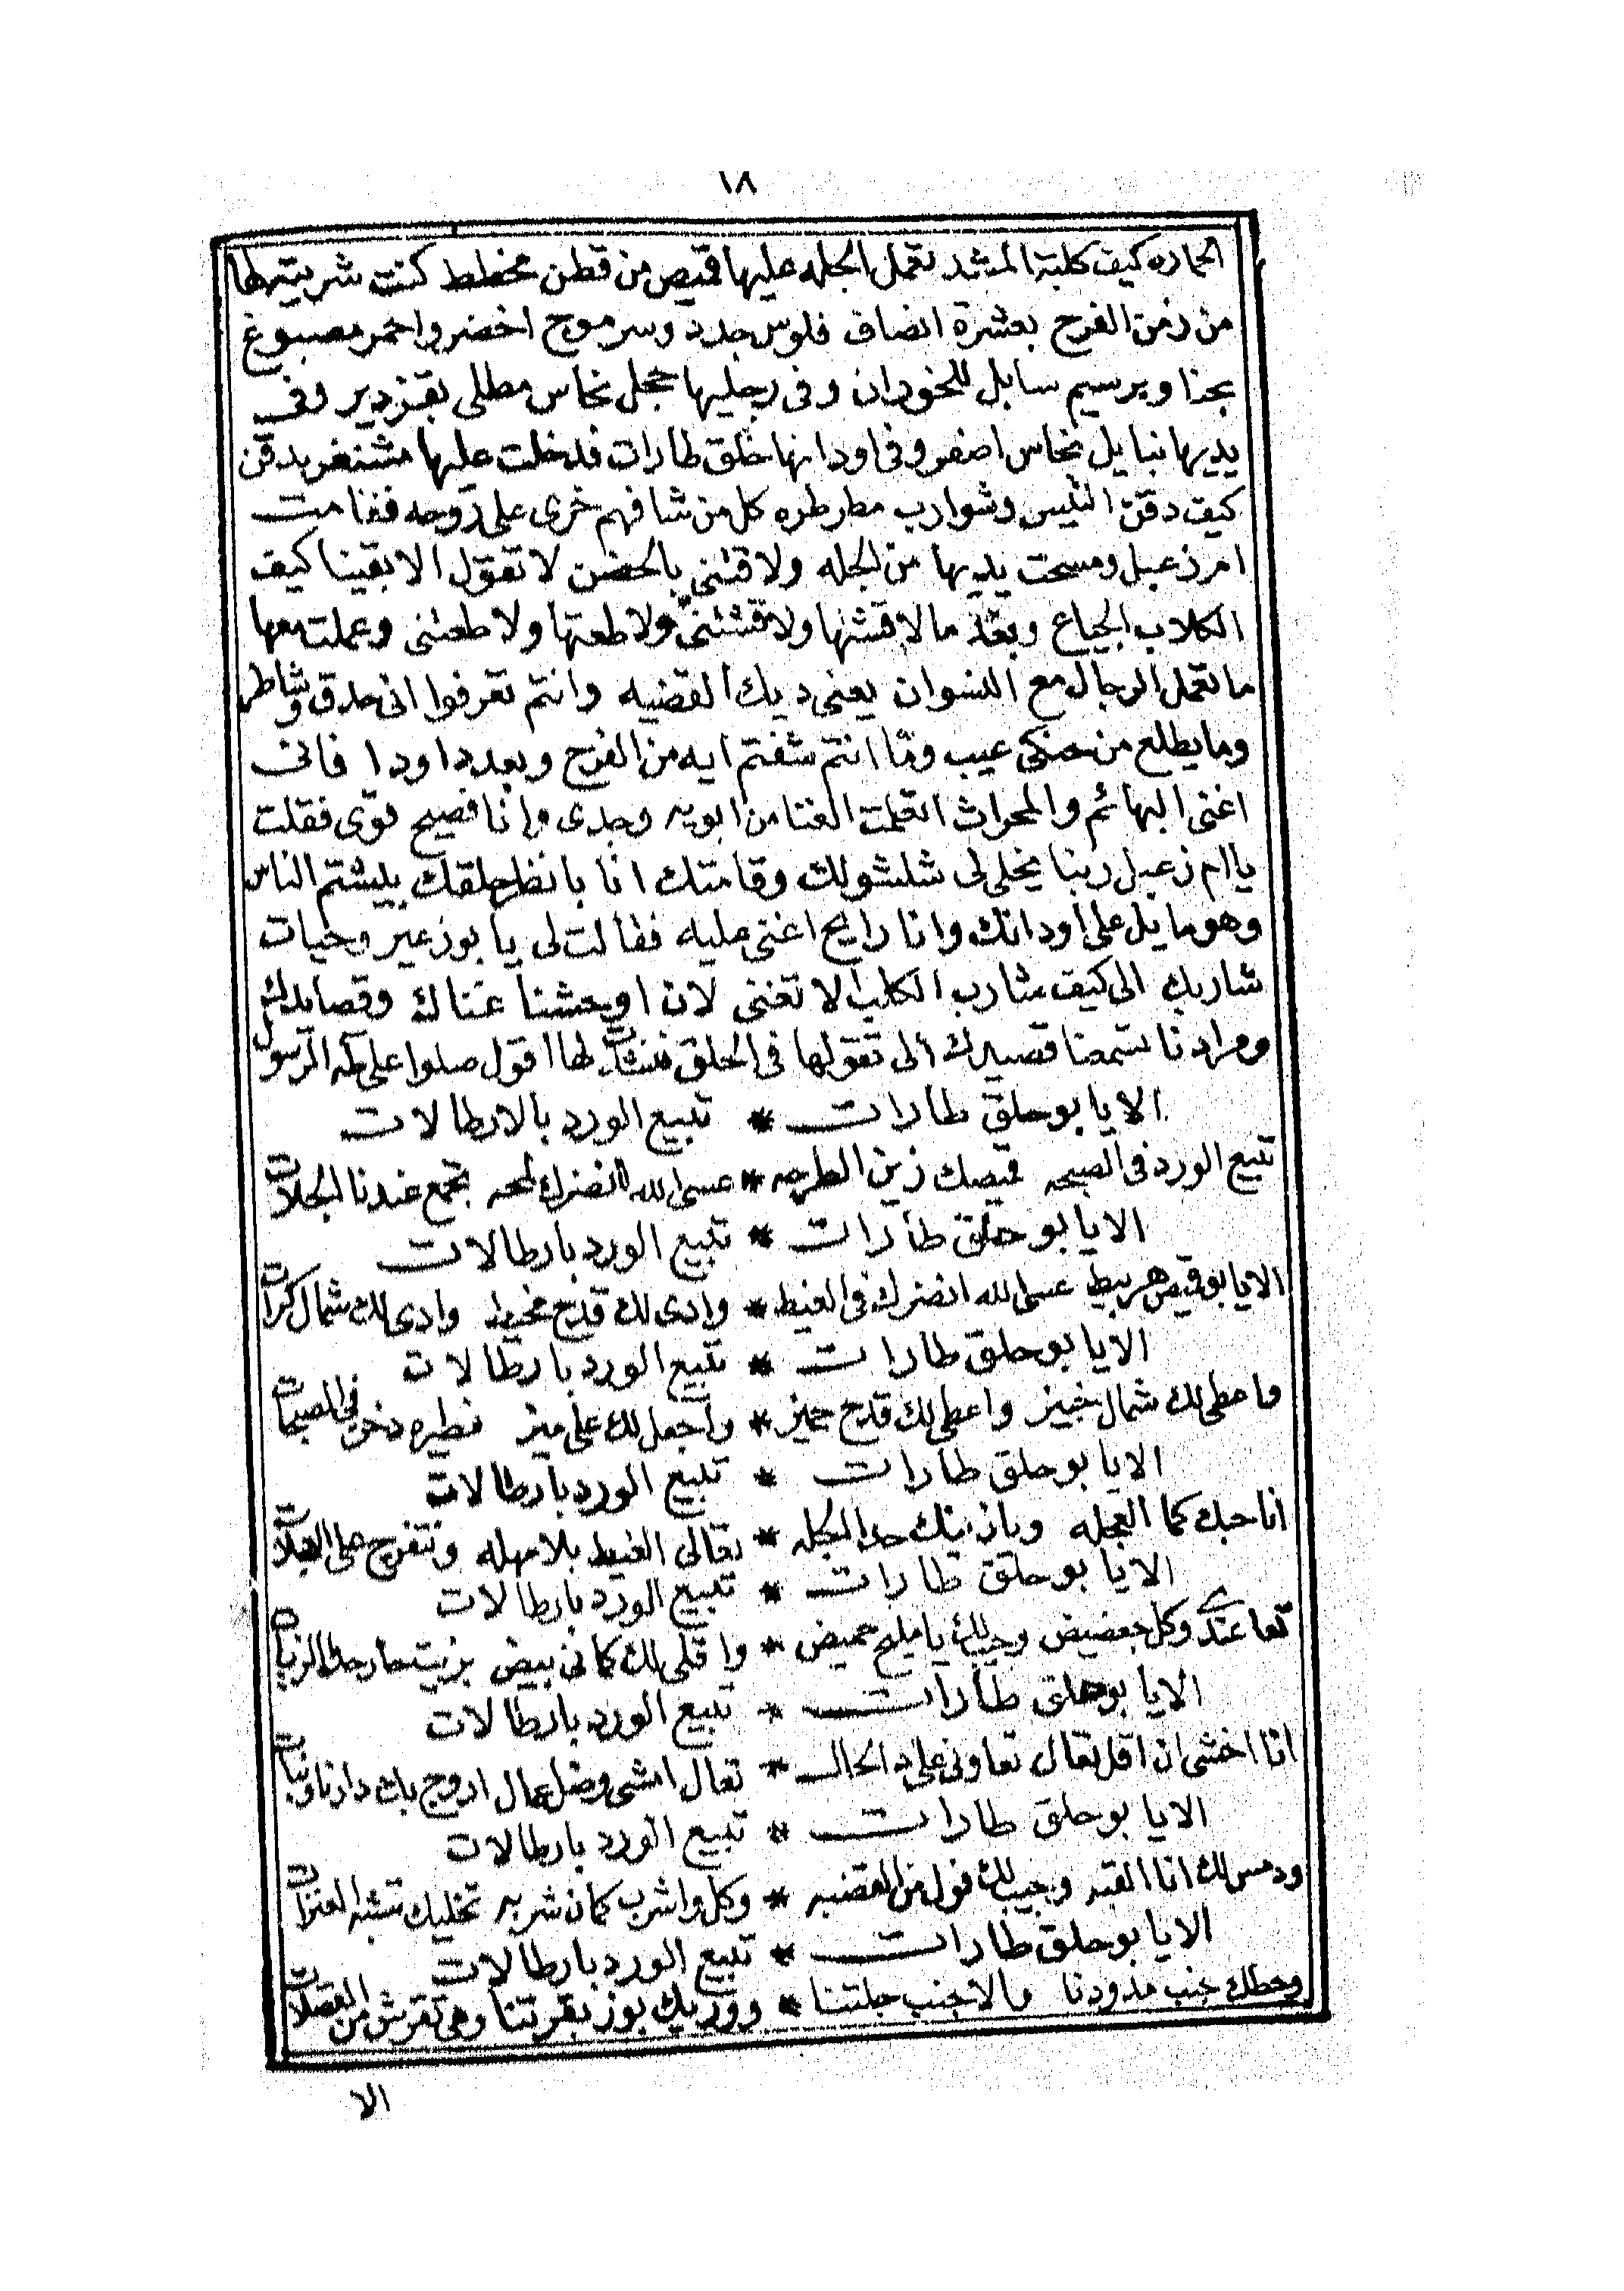 ١٨
الحاره كيف كلبة المشد تعمل الجله عليها قميص من قطن مخطط كنت شريتهلها
من زمن الفرح بعشرة انصاف فلوس جدد وسرموج اخضر واحمر مصبوغ
بحنا وبرسيم سابل للخودان وفى رجليها حجل نحاس مطلى بقزدير وفى
يديها نبايل نحاس اصفر وفى اودانها حلق طارات فدخلت عليها مشنغر بدقن
كيف دقن التيس وشوارب مطرطره كل من شافهم خرى على روحه فقامت
ام زعبل ومسحت يديها من الجله ولاقتنى بالحضن لا تقول الا بقينا كيف
الكلاب الجياع وبعد ما لاقشتها ولاقشتنى ولاطعتها ولاطعتنى وعملت معها
ما تعمل الرجال مع النسوان يعنى ديك القضيه وانتم تعرفوا انى حدق وشاطر
وما يطلع من حنكى عيب وما انتم شفتم ايه من الفرح وبعد دا ودا فانى
اغنى البهائم والمحراث اتعلمت الغنا من ابويه وجدى وانا فصيح قوى فقلت
يا ام زعبل ربنا يخلى لى شلشولك وقامتك انا بانظر حلقك بيشتم الناس
وهو مايل على اودانك وانا رايح اغنى عليه فقالت لى يا بوزعير وحيات
شاربك الى كيف شارب الكلب لا تغنى لان اوحشنا غناك وقصايدك
ومرادنا تسمعنا قصيدك الى تقولها فى الحلق فنشدت لها اقول صلوا على طه الرسول
الا يا بو حلق طارات * تبيع الورد بالارطالات
تبيع الورد فى الصبحه قميصك زين الطرحه * عسى الله انضرك لمحه تجمع عندنا الجلات
الا يا بو حلق طارات * تبيع الورد بارطالات
الا يا بو قميص هربيط عسى الله انضرك فى الغيط * وادى لك قدح مخيط وادى لك شمال كرات
الا يا بو حلق طارات * تبيع الورد بارطالات
واعطى لك شمال خبيز واعطى لك قدح جميز * واجعل لك على ميز فطيره دخن فى الصبحات
الا يا بو حلق طارات * تبيع الورد بارطالات
انا حبك كما العجله وبازينك حدا الجله * تعالى الغيط بلا مهله ونتفرج على العجلات
الا يا بو حلق طارات * تبيع الورد بارطالات
تعا عندى وكل جعضيض وجيب لك يا مليح حميض * واقلى لك كمانى بيض بزيت حار حدا الزيات
الا يا بو حلق طارات * تبيع الورد بارطالات
انا اخشى ان اقل تعال تعاونى على دالحال * تعال امشى وضل عمال اروج بك دارنا وتبات
الا يا بو حلق طارات * تبيع الورد بارطالات
ودمس لك انا القبه وجيب لك فول من القضبه * وكل واشرب كمان شربه تخليك تشبه العنزات
الا يا بو حلق طارات * تبيع الورد بارطالات
وحطك جنب مدودنا والا جنب جلتنا * ووريك بوز بقرتنا وهى تقرش من القصلات
الا